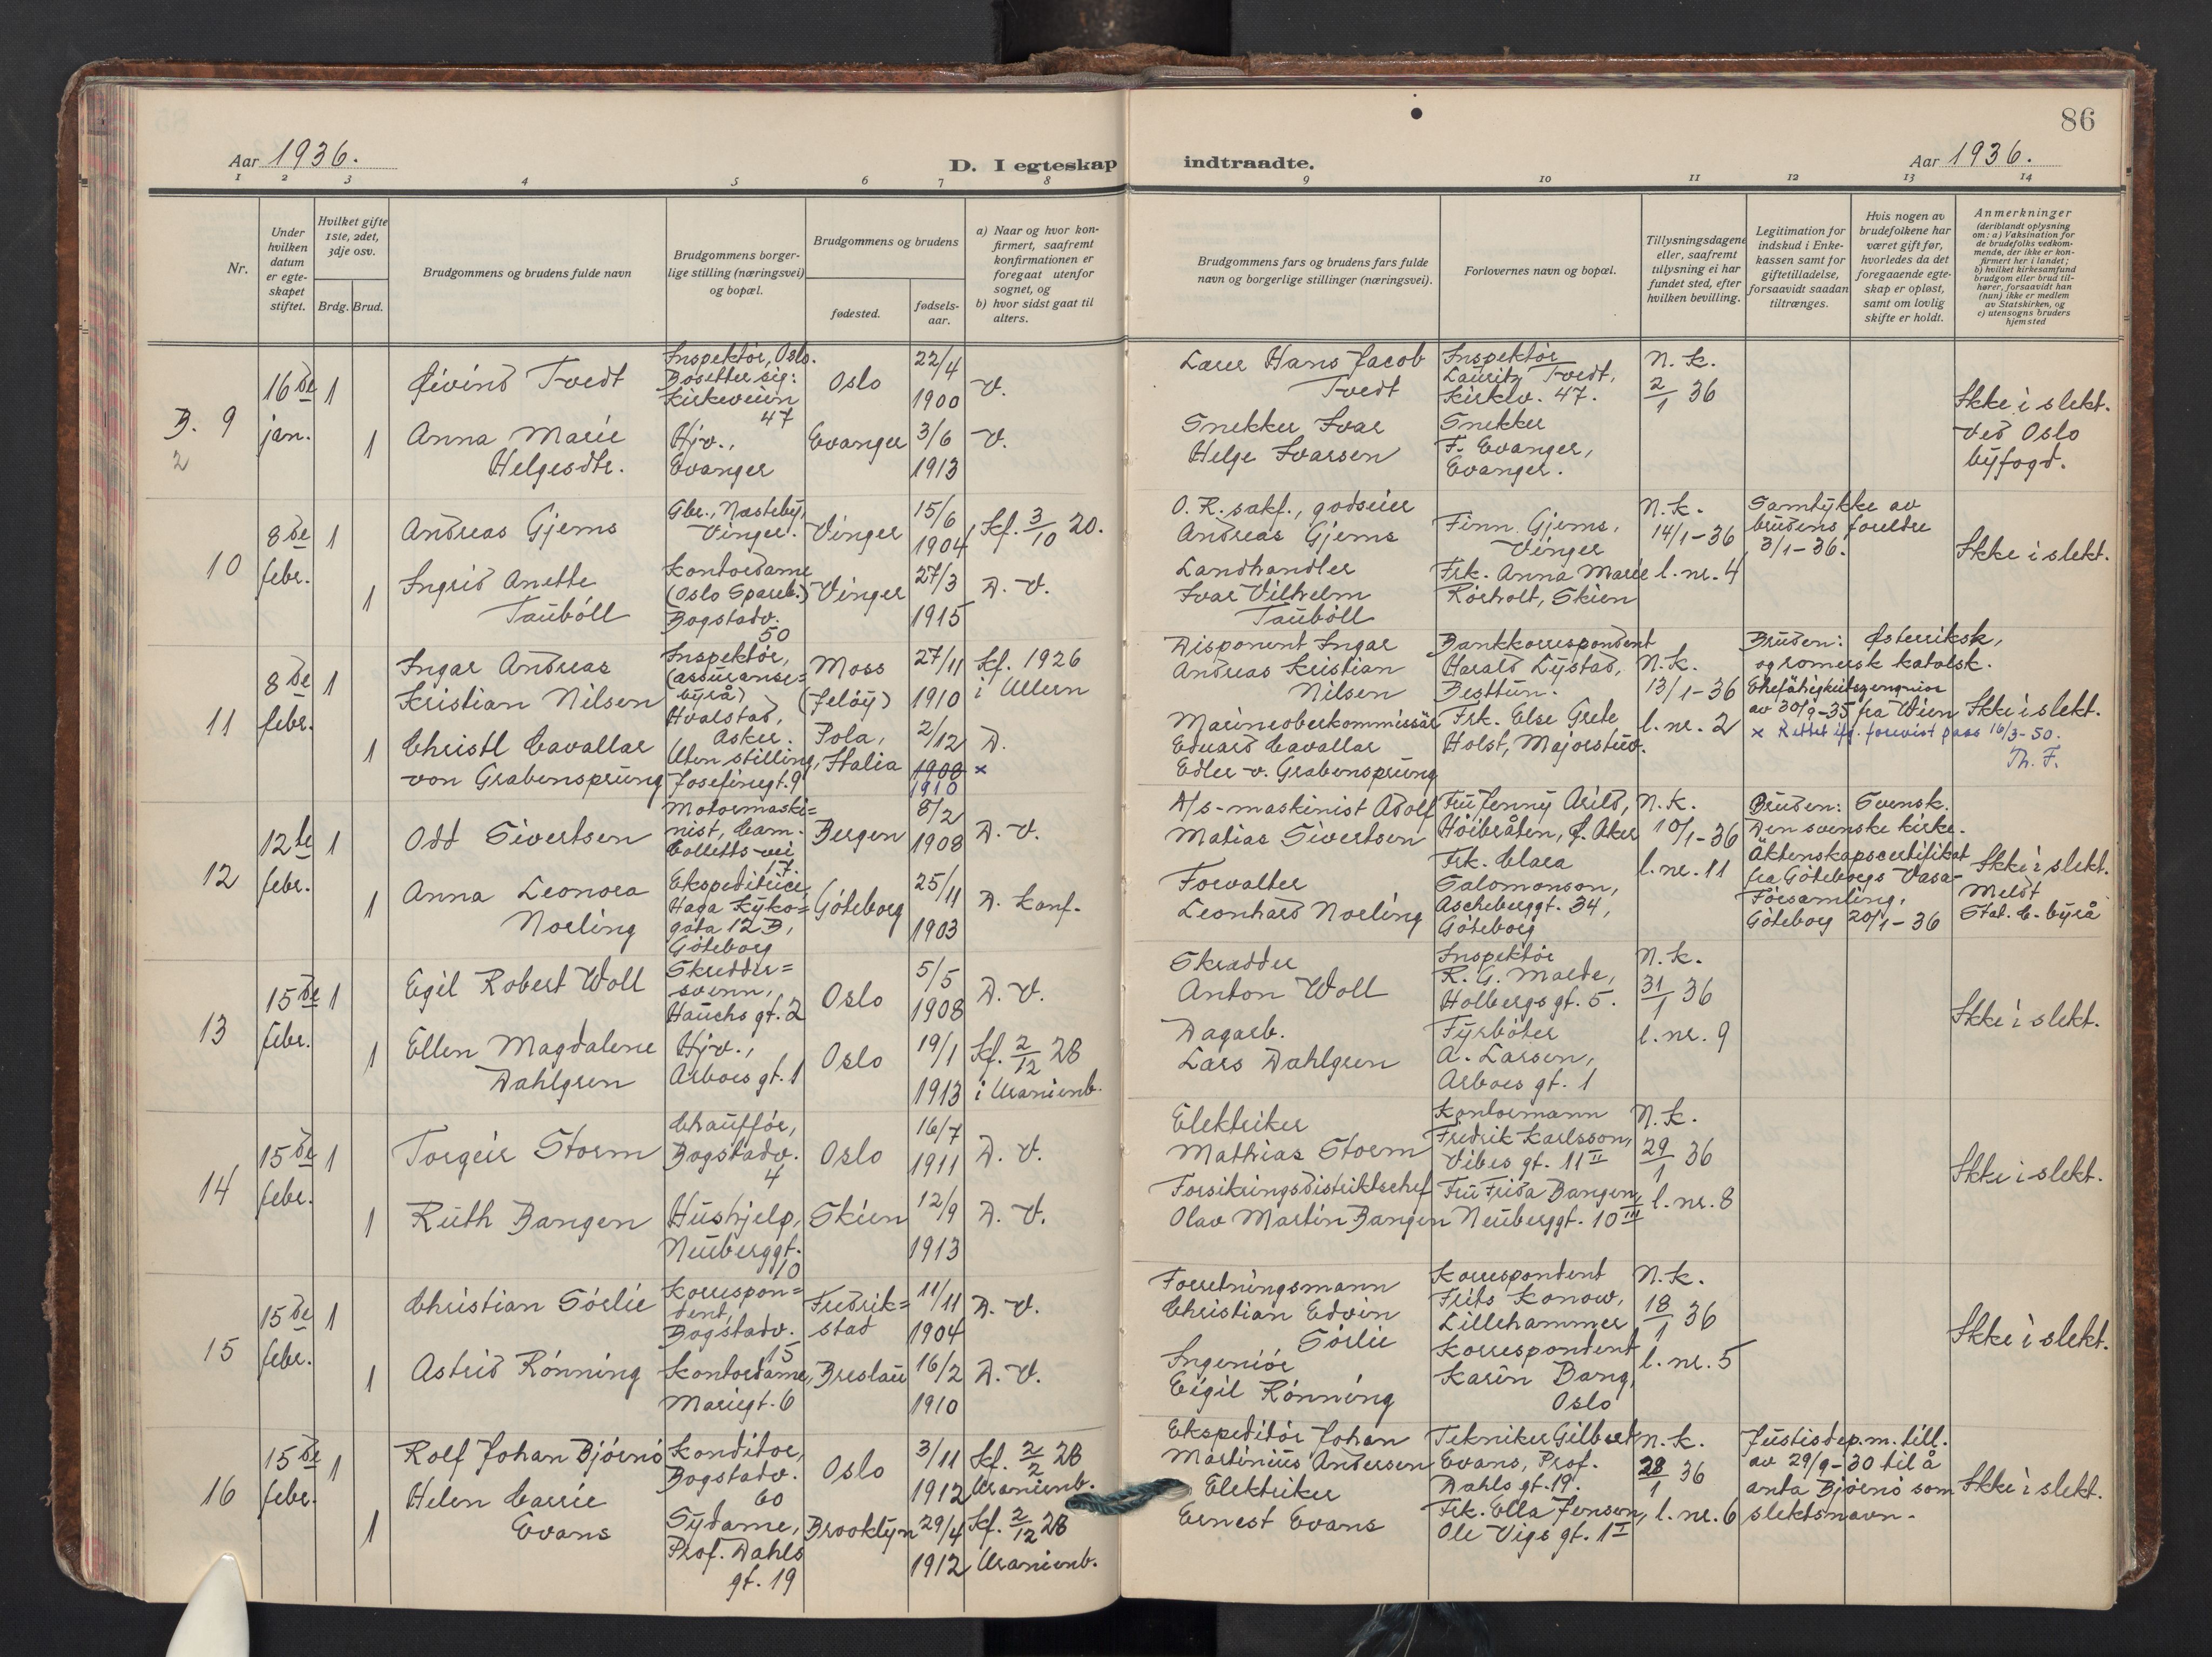 86
Aar 1936.
D. I egteskap indtraadte.
Aar 1936.
1 2 3 4 5 6 7 8 9 10 11 12 13 14
Nr.
Under hvilken datum er egteskapet stiftet.
Hvilket gifte 1ste, 2det, 3dje osv.
Brdg. Brud.
Brudgommens og brudens fulde navn
Brudgommens borgerlige stilling (næringsvei) og bopæl.
Brudgommens og brudens
fødested.
fødselsaar.
a) Naar og hvor konfirmert, saafremt konfirmationen er foregaat utenfor sognet, og
b) hvor sidst gaat til alters.
Brudgommens fars og brudens fars fulde navn og borgerlige stillinger (næringsvei).
Forlovernes navn og bopæl.
Tillysningsdagene eller, saafremt tillysning ei har fundet sted, efter hvilken bevilling.
Legitimation for indskud i Enkekassen samt for giftetilladelse, forsaavidt saadan tiltrænges.
Hvis nogen av brudefolkene har været gift før, hvorledes da det foregaaende egteskap er opløst, samt om lovlig skifte er holdt.
Anmerkninger
(deriblandt oplysning om: a) Vaksination for de brudefolks vedkommende, der ikke er konfirmert her i landet;
b) hvilket kirkesamfund brudgom eller brud tilhører, forsaavidt han (hun) ikke er medlem av Statskirken, og
c) utensogns bruders hjemsted
B. 9
2
16de jan.
1
Øivind Tvedt
Inspektør, Oslo.
Bosetter sig:
Kirkeveien
47
Oslo
22/4
1900
V.
Lærer Hans Jacob
Tvedt
Inspektør
Lauritz Tvedt,
Kirkev. 47.
N.k.
2/1 36
1
Anna Marie
Helgesdtr.
Hjv.,
Evanger
Evanger
3/6
1913
V.
Snekker Ivar
Helge Ivarsen
Snekker
F. Evanger,
Evanger.
Ikke i slekt.
Ved Oslo
byfogd.
10
8de febr.
1
Andreas Gjems
Gbr., Nästeby,
Vinger.
Vinger
15/6
1904
Kf. 3/10 20.
O.R.sakf., godseier
Andreas Gjems
Finn Gjems,
Vinger
N.k.
14/1-36
Samtykke av
brudens foreldre
3/1-36.
1
Ingrid Anette
Taubøll
Kontordame
(Oslo Spareb.)
Bogstadv.
50
Vinger
27/3
1915
D. V.
Landhandler
Ivar Vilhelm
Taubøll
Frk. Anna Marie
Rørholt, Skien
l.nr. 4
Ikke i slekt.
11
8de febr.
1
Ingar Andreas
Kristian Nilsen
Inspektør,
(assuranse=
byrå)
Hvalstad,
Asker.
Moss
(Jeløy)
27/11
1910
Kf. 1926
i Ullern
Disponent Ingar
Andreas Kristian
Nilsen
Bankkorrespondent
Harald Lystad,
Besttun.
N.k.
13/1-36
Bruden: Østerriksk,
og romersk katolsk.
Ehefähigkeitszeugnior
av 30/9-35 fra Wien
x Rettet ifg. forevist pass 16/3-50.
Th. F.
1
Christl Cavallar
von Grabensprung
Uten stilling,
Josefinegt. 9
Pola,
Italia
2/12
1908 x
1910
D.
Marineoberkommissär
Eduard Cavallar
Edler v. Grabensprung
Frk. Else Grete
Holst, Majorstuv.
l.nr. 2
Ikke i slekt.
12
12te febr.
1
Odd Sivertsen
Motormaski=
nist, Cam.
Colletts vei
17.
Bergen
8/2
1908
D. V.
A/s-maskinist Adolf
Matias Sivertsen
Fru Jenny Arild,
Høibråten, Ø. Aker
N.k.
10/1-36
Bruden: Svensk.
Den svenske kirke.
Äktenskapscertifikat
fra Göteborgs Vasa-
Församling,
Göteborg 20/1-36
1
Anna Leonora
Norling
Ekspeditrice,
Haga Kyko=
gata 12 B,
Göteborg
Göteborg
25/11
1903
D. Konf.
Forvalter
Leonhard Norling
Frk. Clara
Salomonson,
Ascheberggt. 34,
Göteborg
l.nr. 11
Ikke i slekt.
Meldt
Stat. C.-byrå
13
15de febr.
1
Egil Robert Woll
Skredder=
svenn,
Hauchs gt. 2
Oslo
5/5
1908
D. V.
Skrædder
Anton Woll
Inspektør
R. G. Maede,
Holbergs gt. 5.
N.k.
31/1 36
1
Ellen Magdalene
Dahlgren
Hjv.,
Arboes gt. 1
Oslo
19/1
1913
Kf. 2/12 28
i Uranienb.
Dagarb.
Lars Dahlgren
Fyrbøter
A. Larsen,
Arboes gt. 1
l.nr. 9
Ikke i slekt.
14
15de febr.
1
Torgeir Storm
Chauffør,
Bogstadv.
4
Oslo
16/7
1911
D. V.
Elektriker
Mathias Storm
Kontormann
Fredrik Karlsson,
Vibes gt. 11 II
N.k.
29/1 36
1
Ruth Bangen
Hushjelp,
Neuberggt.
10
Skien
12/9
1913
D. V.
Forsikringsdistriktschef
Olav Martin Bangen
Fru Frida Bangen,
Neuberggt. 10 III
l.nr. 8
Ikke i slekt.
15
15de febr.
1
Christian Sørlie
Korrespon=
dent,
Bogstadv.
15
Fredrik=
stad
11/11
1904
D. V.
Forretningsmann
Christian Edvin
Sørlie
Korrespondent
Frits Konow,
Lillehammer
N.k.
18/1 36
1
Astrid Rønning
Kontordame,
Mariegt. 6
Breslau
16/2
1910
D. V.
Ingeniør
Eigil Rønning
Korrespondent
Karin Bang,
Oslo
l.nr. 5
Ikke i slekt.
16
15de febr.
1
Rolf Johan Bjørnø
Konditor,
Bogstadv.
60
Oslo
3/11
1912
Kf. 2/2 28
Uranienb.
Ekspeditør Johan
Martinius Andersen
Tekniker Gilbert
Evans, Prof.
Dahls gt. 19.
N.k.
28/1 36
Justisdep.m. till.
av 29/9-30 til å
anta Bjørnø som
slektsnavn.
1
Helen Carrie
Evans
Sydame,
Prof. Dahls
gt. 19
Brooklyn
29/4
1912
Kf. 2/12 28
Uranienb.
Elektriker
Ernest Evans
Frk. Ella Jensen,
Ole Vigs gt. 1 I
l.nr. 6
Ikke i slekt.